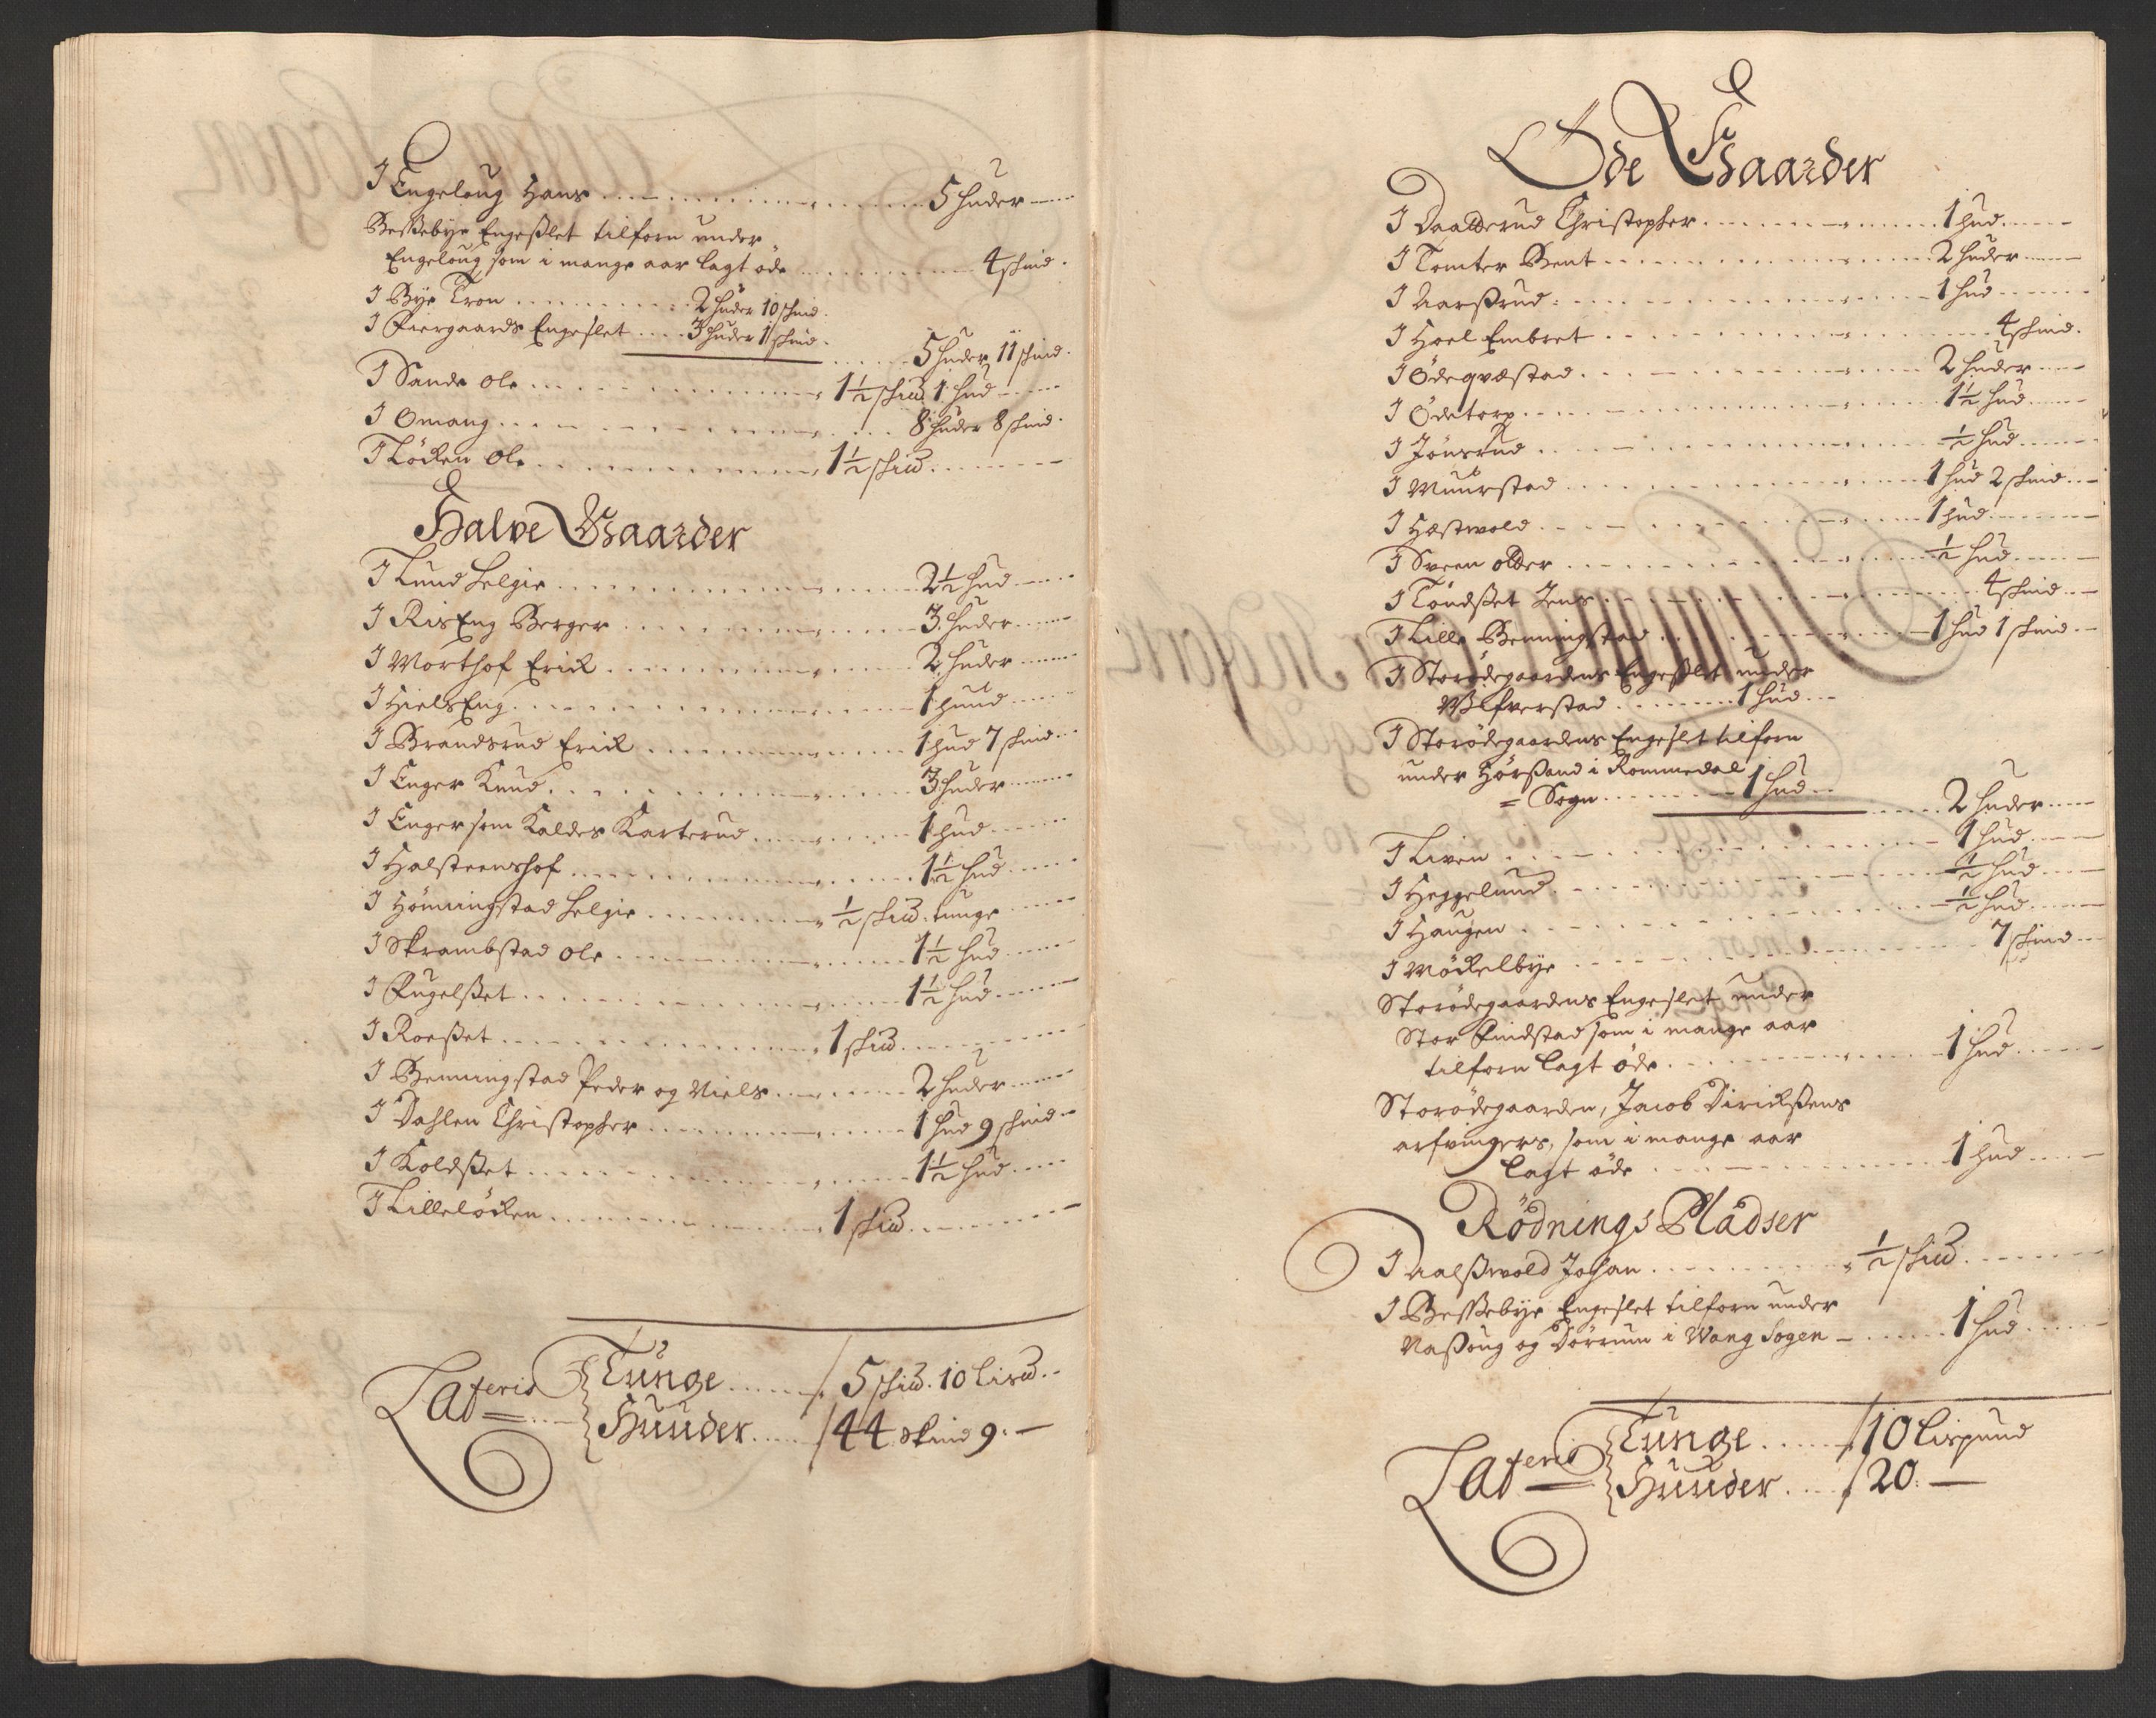 I Engeloug Hans 5 huder
Bessebye Engesslet tilforn under
Engeloug som i mange aar lagt øde 4 skind.
I Bye Tron 2 huder 10 skind.
I Fiergaards Engeslet 3 huder 1 skind. 5 huder 11 skind.
I Sande Ole 1½ skiu 1 hud
I Omang 8 huder 8 skind.
I Løcken Ole 1½ skiu.
Halve Gaarder
I Lund Helgie 2½ hud
I RisEng Berger 3 huder
I Worthof Erick 2 huder
I HielsEng 1 huud
I Brandsrud Erick 1 hud 7 skind.
I Enger Knud 3 huder
I Enger som kaldes Karterud 1 hud
I Halsteenshof 1½ hud
I Hømingstad Helgie ½ skiu. tunge
I Skrambstad Ole 1½ hud
I Fugelsset 1½ hud
I Roesset 1 skiu.
I Benningstad Peder og Niels 2 huder
I Dahlen Christopher 1 hud 9 skind
I Koldsset 1½ hud
I Lilleløcken 1 skiu.
Lateris Tunge 5 skiu. 10 Lisu.
Huuder 44 skind 9.
Øde Gaarder
I Daalderud Christopher 1 hud
I Tomter Bent 2 huder
I Aarssrud 1 hud
I Hoel Embret 4 skind.
I Ødeqvæstad 2 huder
I Ødetorp 1½ hud
I Jønsrud ½ hud
I Muurstad 1 hud 2 skind
I Hæstwold 1 hud
I Sveen older ½ hud
I Tøndsset Jens 4 skind
I Lille Benningstad 1 hud 1 skind
I Storødegaardens Engesslet under
Wlfverstad 1 hud
I Storødegaardens Engeslet tilforn
under Hørssand i Rommedal
Sogn 1 hud 2 huder
I Liven 1 hud
I Heggelund ½ hud
I Haugen ½ hud
I Møckelbye 7 skind
Storødegaardens Engeslet under
Stor Findstad som i mange aar
tilforn lagt øde 1 hud
Storødegaarden, Jacob Dirickssens
arfvingers, som i mange aar
lagt øde 1 hud
Rødnings Pladser
I Aalsswold Johan ½ skiu.
I Bessebye Engeslet tilforn under
Nassoug og Dørrum i Wang Sogen 1 hud
Lateris Tunge 10 Lispund
Huuder 20.